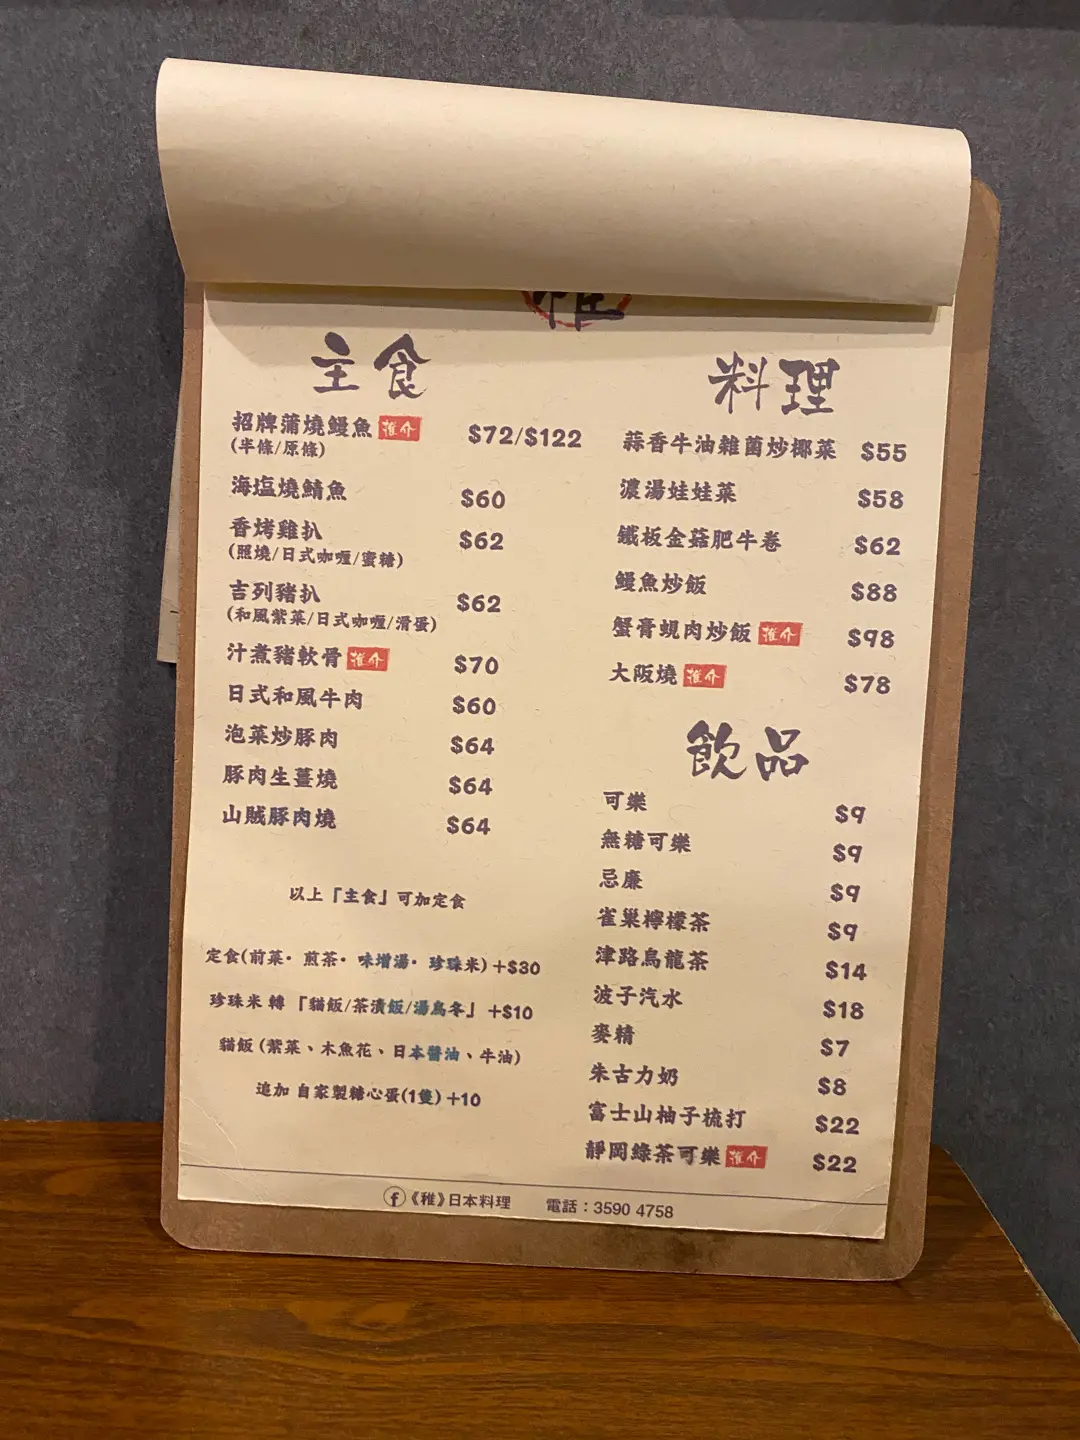 主食
招牌蒲燒鰻魚 推介 $72/$122
(半條/原條)
海塩燒鯖魚 $60
香烤雞扒 $62
(照燒/日式咖喱/蜜糖)
吉列豬扒 $62
(和風紫菜/日式咖喱/滑蛋)
汁煮豬軟骨 推介 $70
日式和風牛肉 $60
泡菜炒豚肉 $64
豚肉生薑燒 $64
山賊豚肉燒 $64
以上「主食」可加定食
定食(前菜· 煎茶· 味增湯· 珍珠米)+$30
珍珠米 轉 「貓飯/茶漬飯/湯烏冬」 +$10
貓飯 (紫菜、木魚花、日本醬油、牛油)
追加 自家製糖心蛋(1隻)+10
料理
蒜香牛油雜菌炒椰菜 $55
濃湯娃娃菜 $58
鐵板金菇肥牛卷 $62
鰻魚炒飯 $88
蟹膏蜆肉炒飯 推介 $98
大阪燒 推介 $78
飲品
可樂 $9
無糖可樂 $9
忌廉 $9
雀巢檸檬茶 $9
津路烏龍茶 $14
波子汽水 $18
麥精 $7
朱古力奶 $8
富士山柚子梳打 $22
靜岡綠茶可樂 推介 $22
f《稚》日本料理 電話：3590 4758